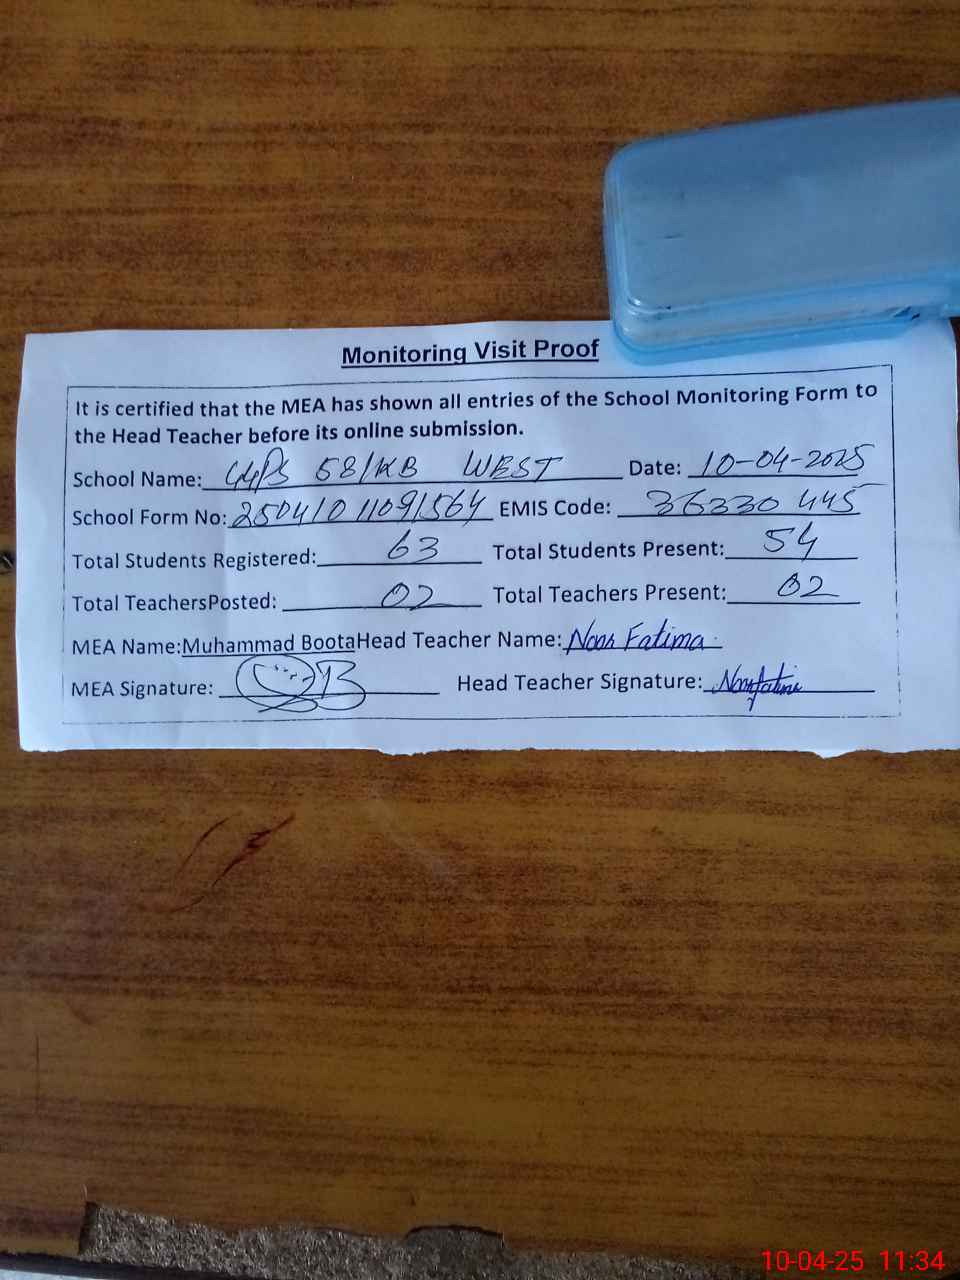 Monitoring Visit Proof
It is certified that the MEA has shown all entries of the School Monitoring Form to
the Head Teacher before its online submission.
School Name: GGPS 58/KB WEST Date: 10-04-2025
School Form No: 250410 11091564 EMIS Code: 36330 445
Total Students Registered: 63 Total Students Present: 54
Total TeachersPosted: 02 Total Teachers Present: 02
MEA Name:Muhammad BootaHead Teacher Name: Noor Fatima.
MEA Signature: Head Teacher Signature: Noorfatima
10-04-25 11:34